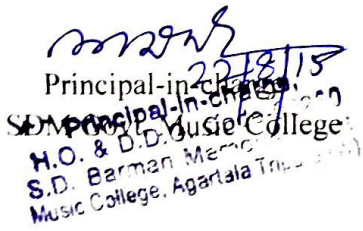 22/8/15
Principal-in-charge
SDM Govt. Music College
Principal-in-charge,
H.O. & D.D.O
S.D. Barman Memorial
Music College, Agartala